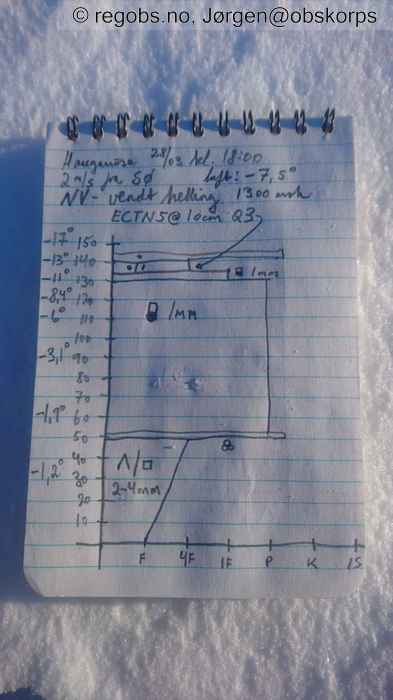 © regobs.no, Jørgen@obskorps
28/03 kl. 18:00
2 m/s fra SØ luft: -7,5°
NV-vendt helling 1300 moh
ECTN5@10cm Q3
-17° 150
-13° 140
-11° 130 1mm
-8,4° 120
-6° 110 /mm
100
-3,1° 90
80
70
-1,9° 60
50
40
-1,2° 30 Λ/□
20 2-4mm
10
F 4F 1F P K IS